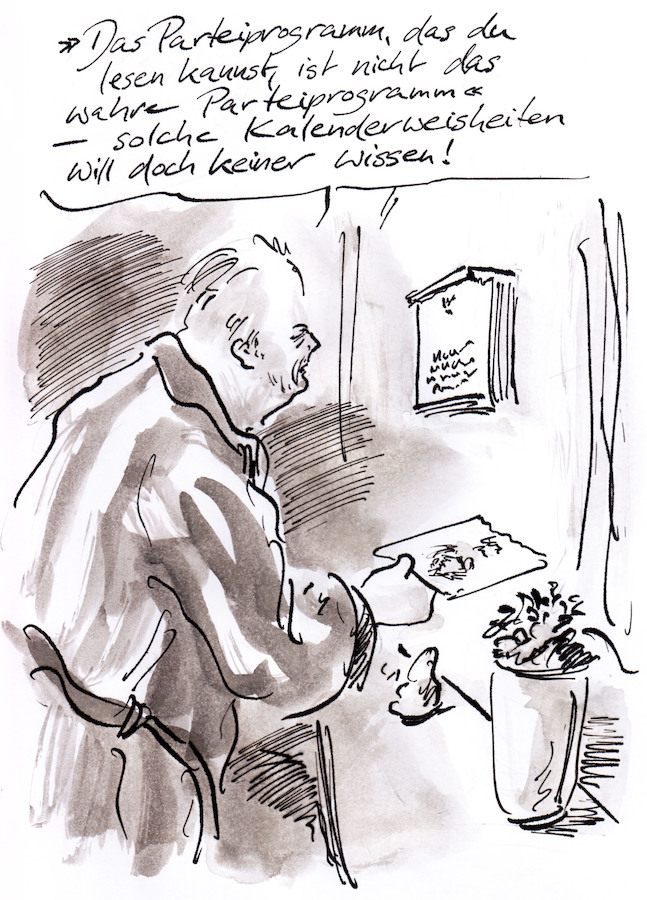 »Das Parteiprogramm, das du
lesen kannst, ist nicht das
wahre Parteiprogramm«
– solche Kalenderweisheiten
will doch keiner wissen!